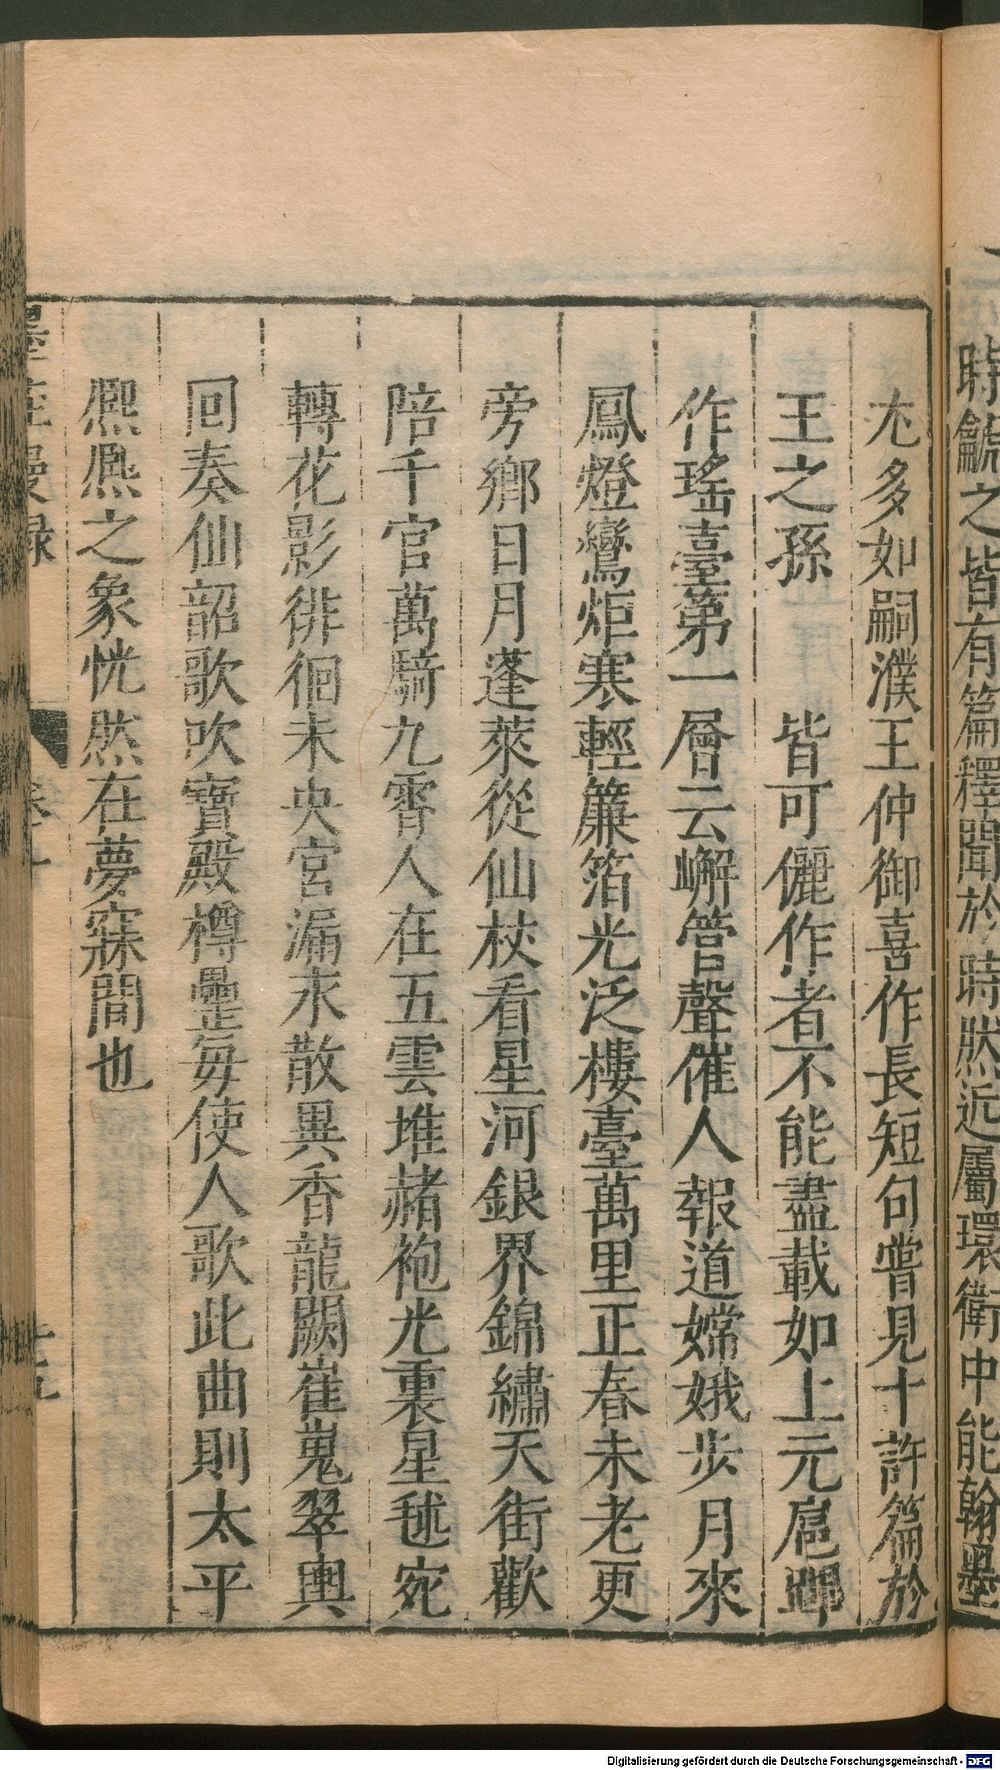 時龢之皆有篇釋聞於時然近屬環衛中能翰墨
尤多如嗣濮王仲御喜作長短句嘗見十許篇於
王之孫 皆可儷作者不能盡載如上元扈蹕
作瑤臺第一層云嶰管聲催人報道嫦娥步月來
鳳燈鸞炬寒輕簾箔光泛樓臺萬里正春未老更
旁鄉日月蓬萊從仙杖看星河銀界錦繡天街歡
陪千官萬騎九霄人在五雲堆赭袍光裏星毬宛
轉花影徘徊未央宮漏永散異香龍闕崔嵬翠輿
回奏仙韶歌吹寶殿樽罍每使人歌此曲則太平
熈熈之象恍然在夢寐間也
墨莊漫録 卷十 十五
Digitalisierung gefördert durch die Deutsche Forschungsgemeinschaft - DFG